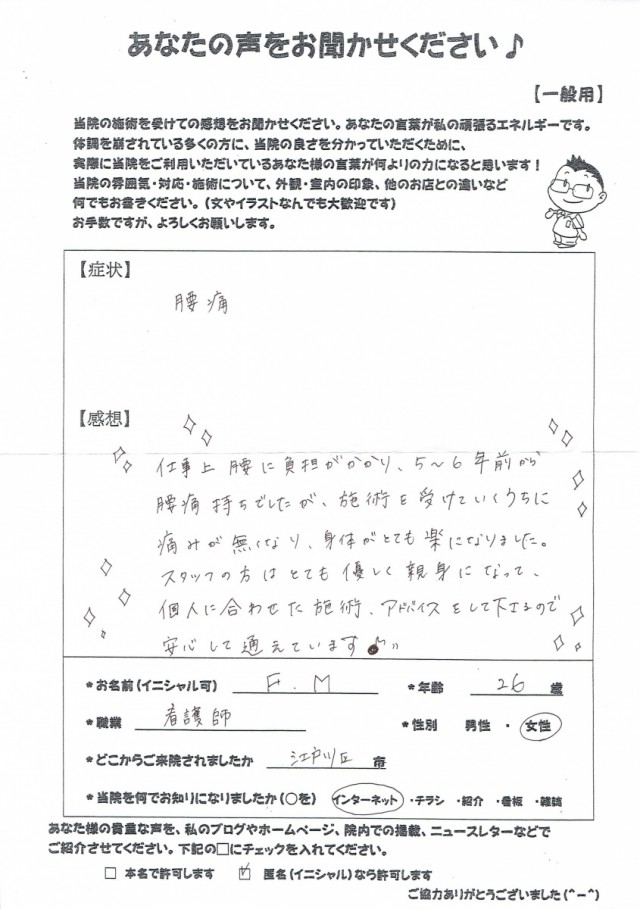 あなたの声をお聞かせください♪
【一般用】
当院の施術を受けての感想をお聞かせください。あなたの言葉が私の頑張るエネルギーです。
体調を崩されている多くの方に、当院の良さを分かっていただくために、
実際に当院をご利用いただいているあなた様の言葉が何よりの力になると思います！
当院の雰囲気・対応・施術について、外観・室内の印象、他のお店との違いなど
何でもお書きください。（文やイラストなんでも大歓迎です）
お手数ですが、よろしくお願いします。
【症状】
腰痛
【感想】
仕事上 腰に負担がかかり、5～6年前から
腰痛持ちでしたが、施術を受けていくうちに
痛みが無くなり、身体がとても楽になりました。
スタッフの方はとても優しく親身になって、
個人に合わせた施術、アドバイスをして下さるので
安心して通えています♪
*お名前（イニシャル可） F.M *年齢 26 歳
*職業 看護師 *性別 男性 ・ 女性
*どこからご来院されましたか 江戸川区 市
*当院を何でお知りになりましたか（○を） インターネット ・チラシ ・紹介 ・看板 ・雑誌
あなた様の貴重な声を、私のブログやホームページ、院内での掲載、ニュースレターなどで
ご紹介させてください。下記の□にチェックを入れてください。
□ 本名で許可します ☑ 匿名（イニシャル）なら許可します
ご協力ありがとうございました（^－^）